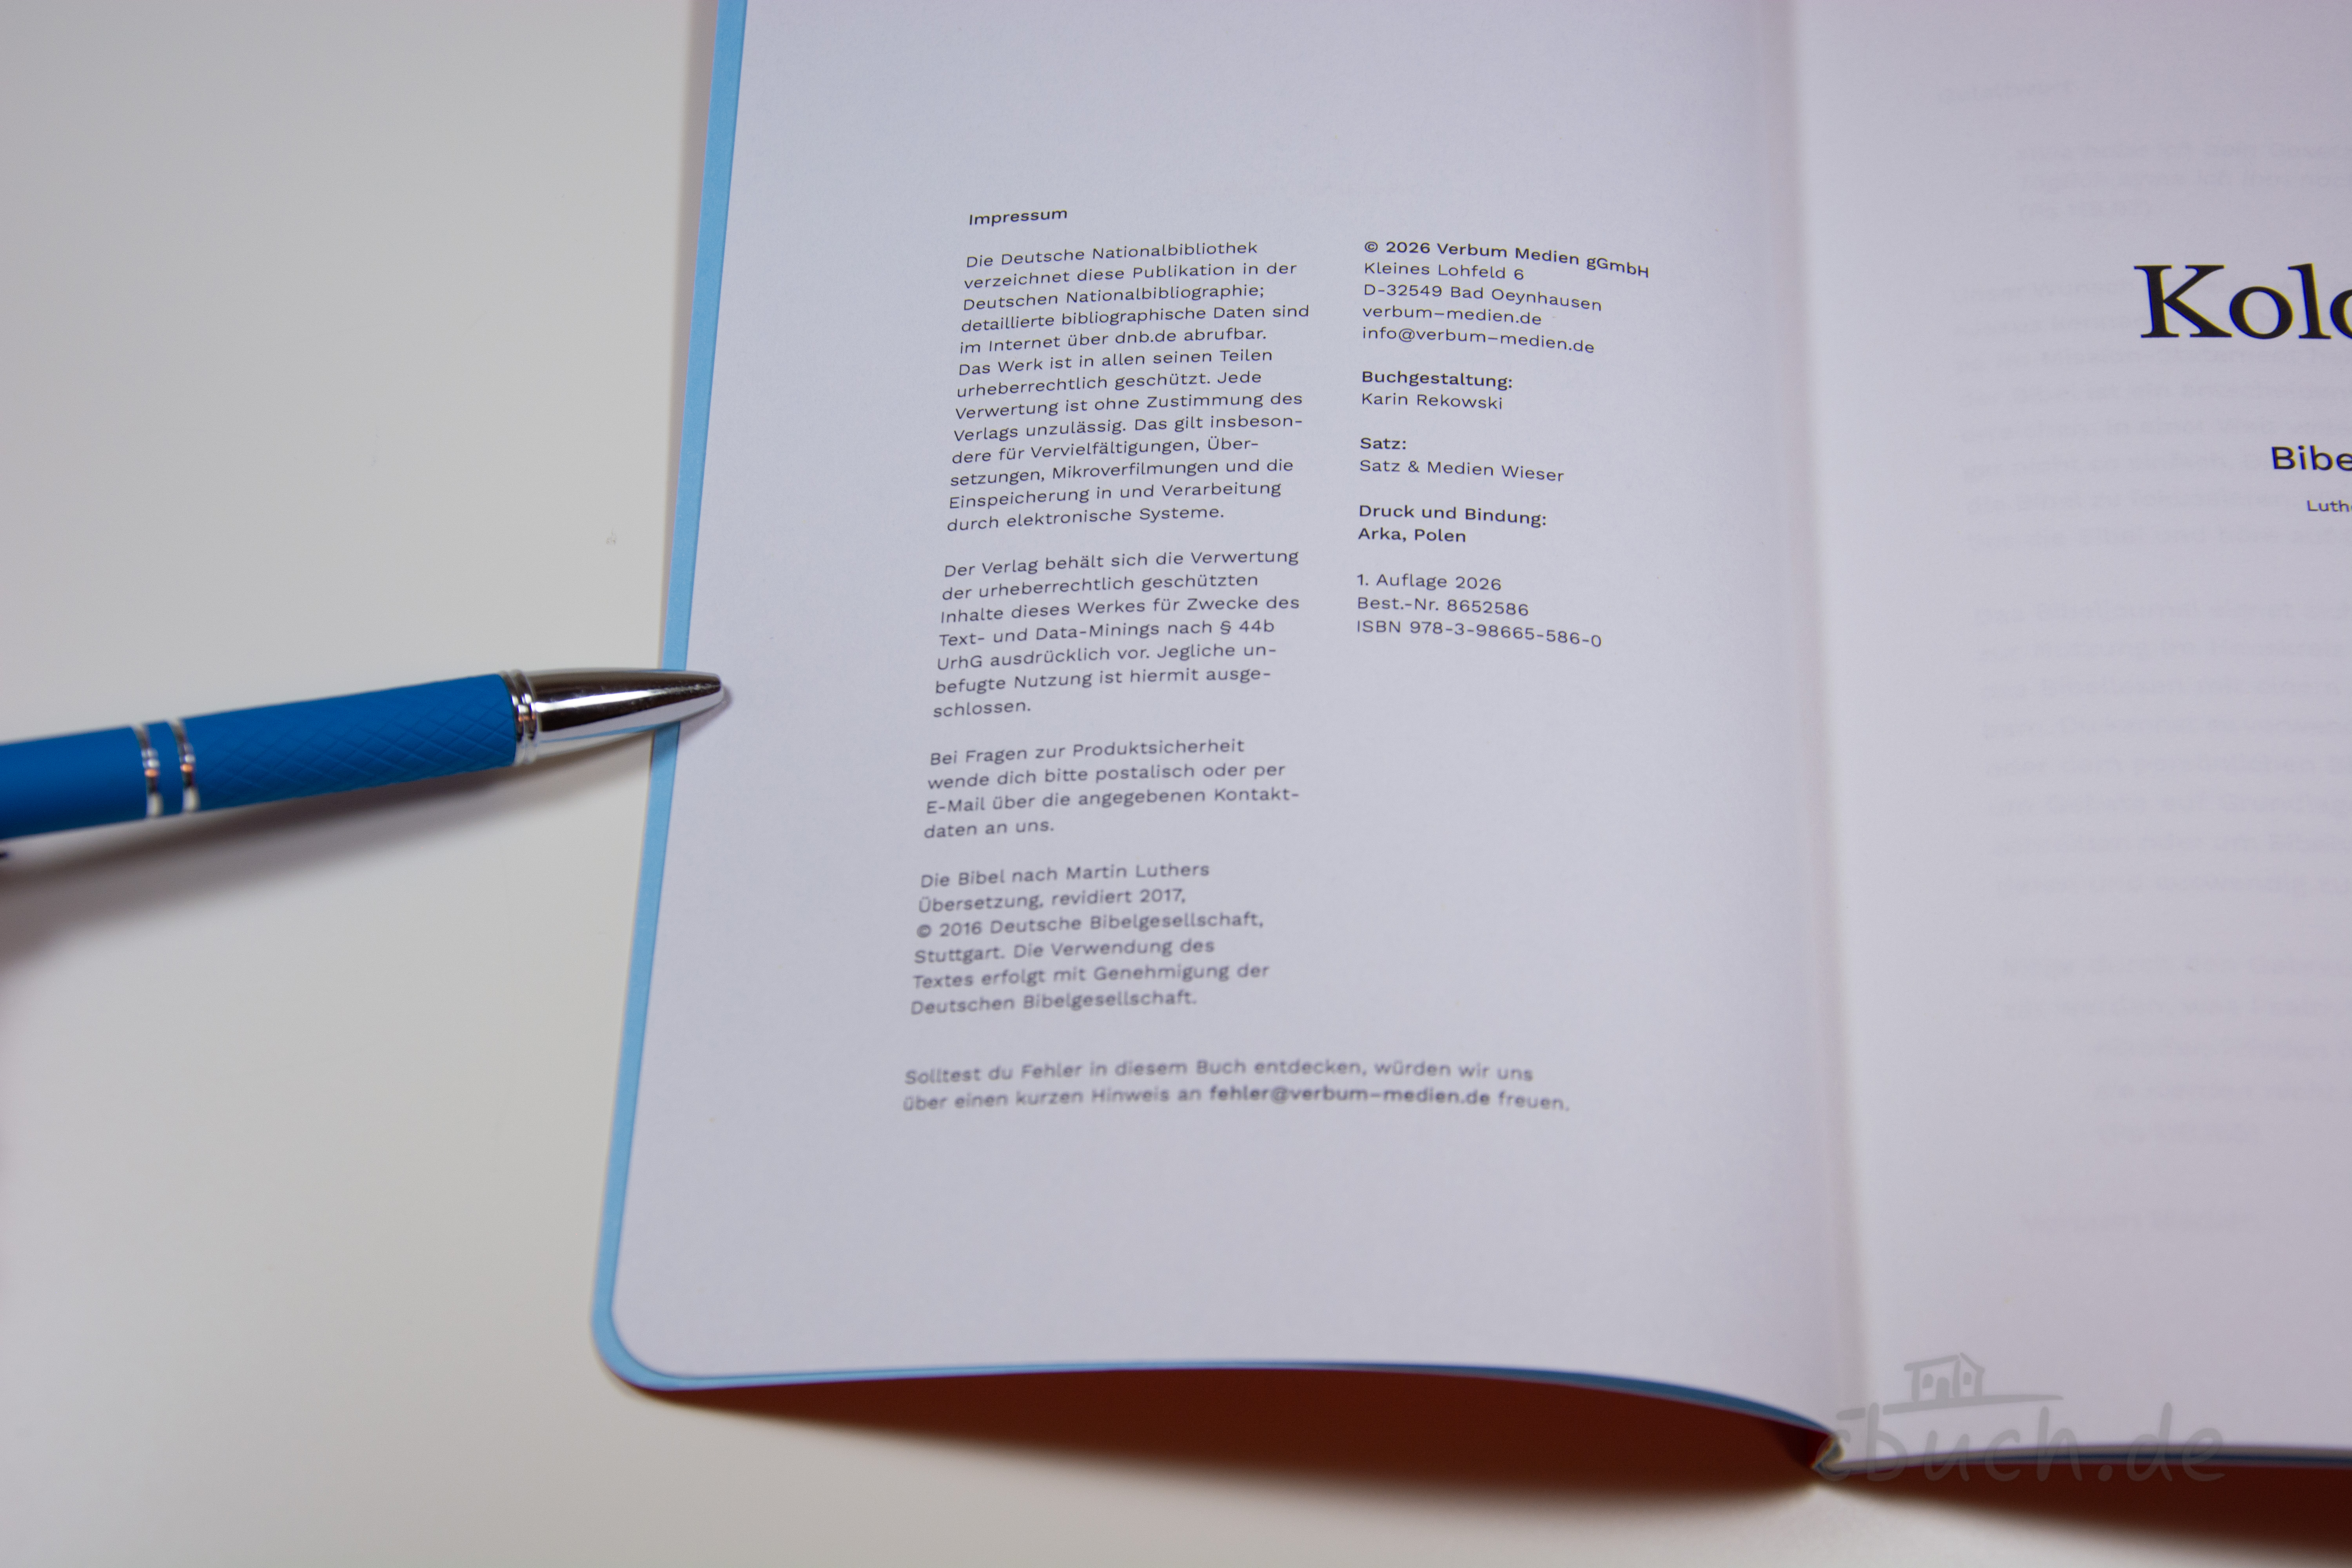 Impressum
Die Deutsche Nationalbibliothek
verzeichnet diese Publikation in der
Deutschen Nationalbibliographie;
detaillierte bibliographische Daten sind
im Internet über dnb.de abrufbar.
Das Werk ist in allen seinen Teilen
urheberrechtlich geschützt. Jede
Verwertung ist ohne Zustimmung des
Verlags unzulässig. Das gilt insbeson-
dere für Vervielfältigungen, Über-
setzungen, Mikroverfilmungen und die
Einspeicherung in und Verarbeitung
durch elektronische Systeme.
Der Verlag behält sich die Verwertung
der urheberrechtlich geschützten
Inhalte dieses Werkes für Zwecke des
Text- und Data-Minings nach § 44b
UrhG ausdrücklich vor. Jegliche un-
befugte Nutzung ist hiermit ausge-
schlossen.
Bei Fragen zur Produktsicherheit
wende dich bitte postalisch oder per
E-Mail über die angegebenen Kontakt-
daten an uns.
Die Bibel nach Martin Luthers
Übersetzung, revidiert 2017,
© 2016 Deutsche Bibelgesellschaft,
Stuttgart. Die Verwendung des
Textes erfolgt mit Genehmigung der
Deutschen Bibelgesellschaft.
© 2026 Verbum Medien gGmbH
Kleines Lohfeld 6
D-32549 Bad Oeynhausen
verbum-medien.de
info@verbum-medien.de
Buchgestaltung:
Karin Rekowski
Satz:
Satz & Medien Wieser
Druck und Bindung:
Arka, Polen
1. Auflage 2026
Best.-Nr. 8652586
ISBN 978-3-98665-586-0
Solltest du Fehler in diesem Buch entdecken, würden wir uns
über einen kurzen Hinweis an fehler@verbum-medien.de freuen.
Kolo
Bibe
Luth
ebuch.de